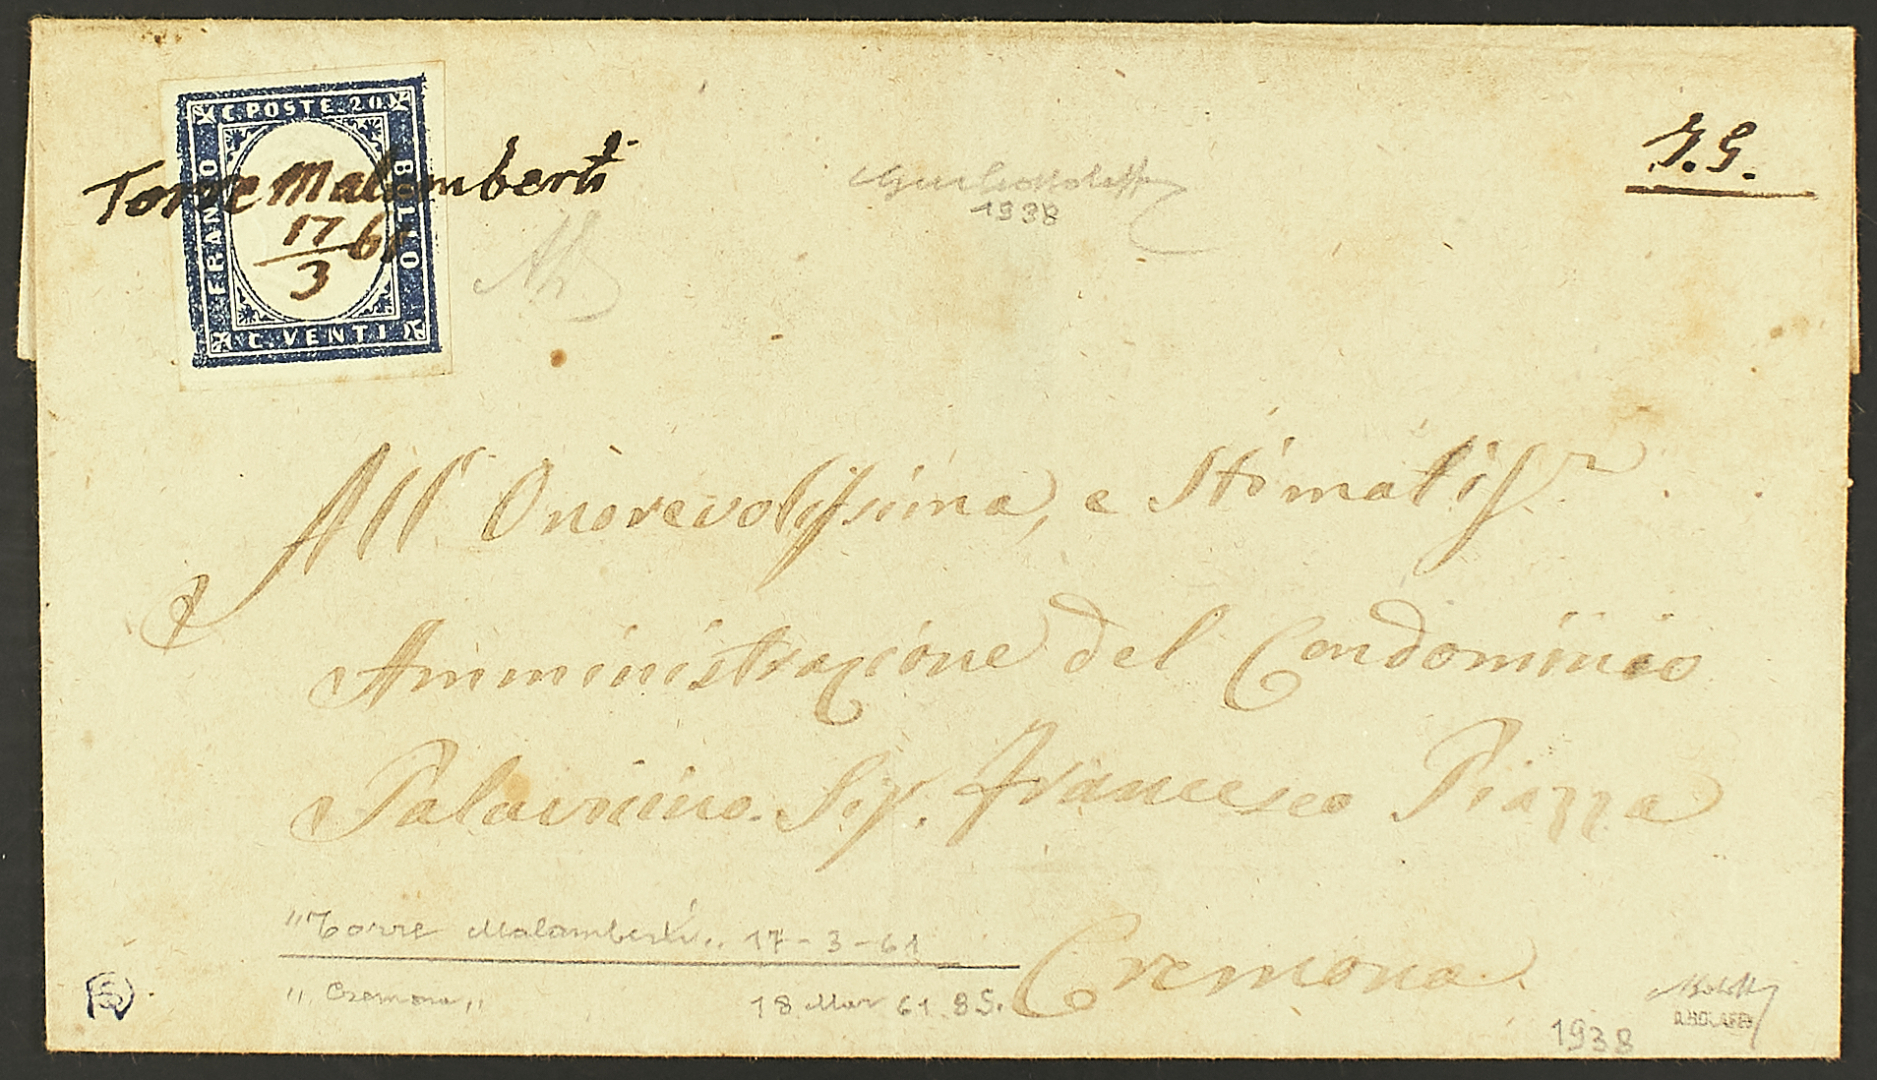 C. POSTE. 20
FRANCO
BOLLO
C. VENTI
Torre Malamberti
17/3 61
J. G.
1938
All' Onorevolissima, e Stimatiss.ª
Amministrazione del Condominio
Palavicino. Sig. Francesco Piazza
Cremona.
"Torre Malamberti" 17-3-61
"Cremona" 18 Mar 61. 8 S.
1938